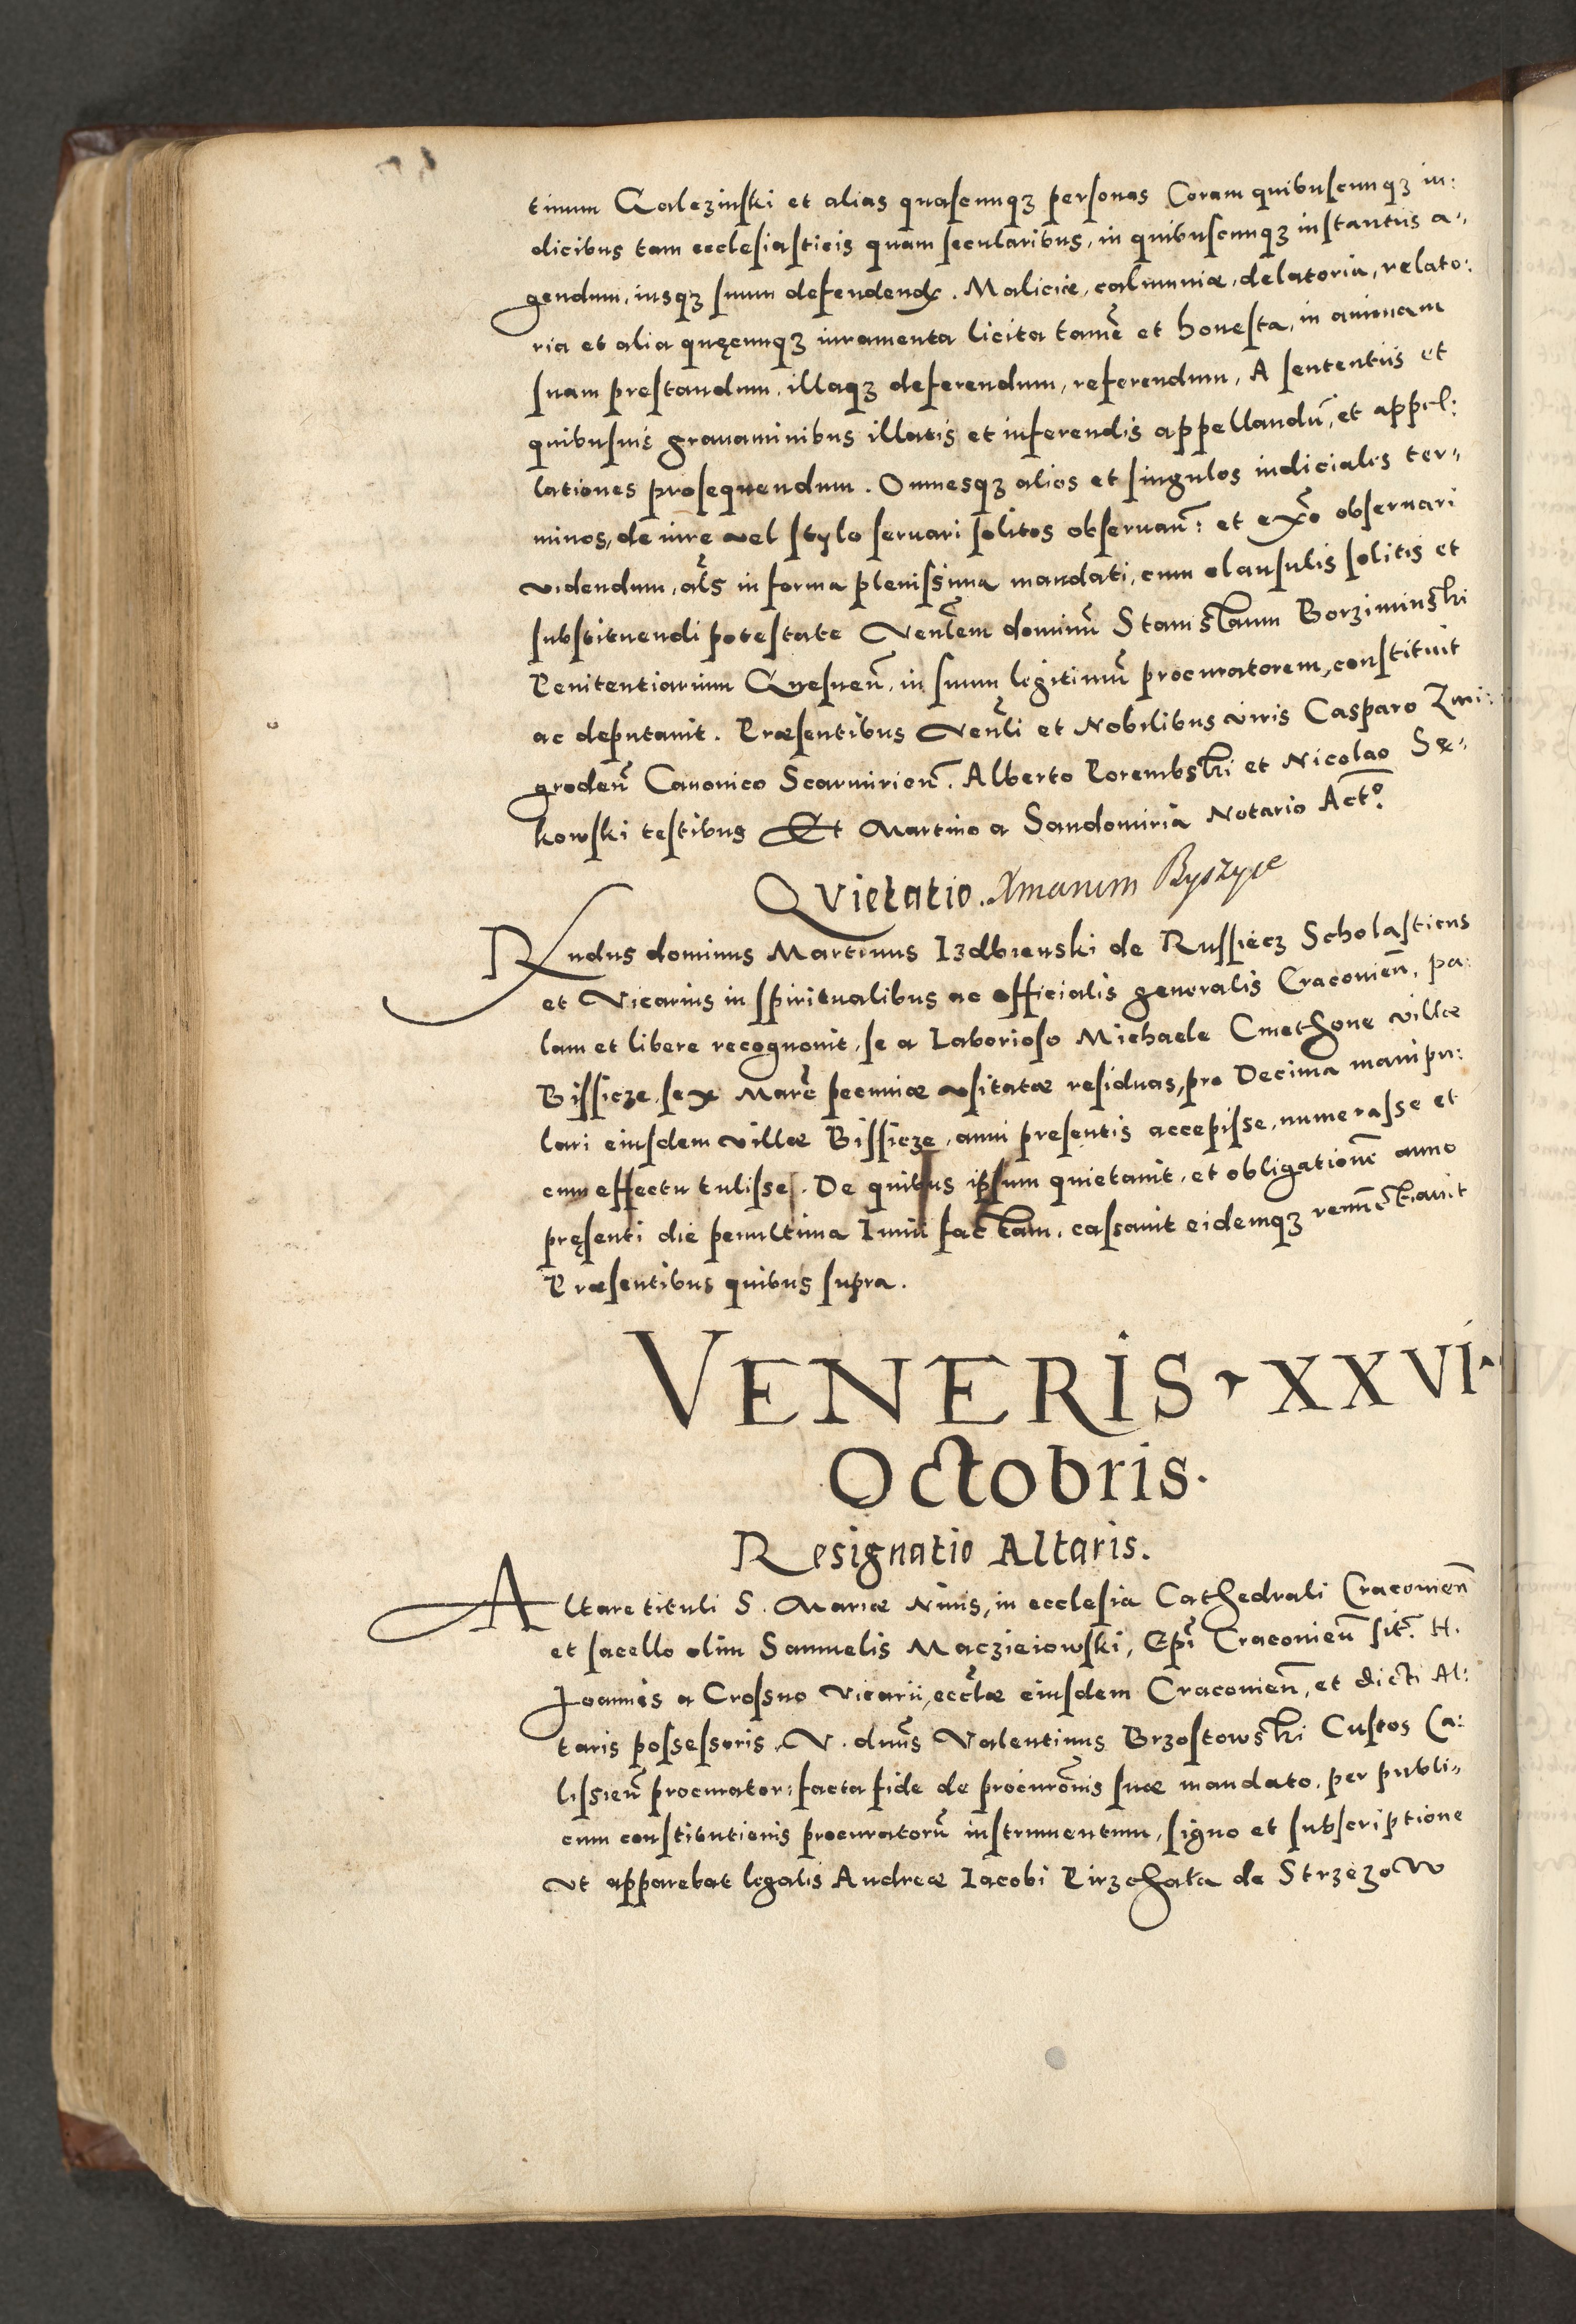 tinum Galezinski et alias quascunqꝫ personas Coram quibuscunqꝫ iu:
dicibus tam ecclesiasticis quam secularibus, in quibuscunqꝫ instantiis a„
gendum, iusqꝫ suum defendend. Maliciæ, calumniæ, delatoria, relato:
ria et alia quęcunqꝫ iuramenta licita tamē et honesta, in animam
suam prestandum, illaqꝫ deferendum, referendum, A sententiis et
quibusuis grauaminibus illatis et inferendis appellandū, et appel:
lationes prosequendum. Omnesqꝫ alios et singulos iudiciales ter„
minos, de iure vel stylo seruari solitos obseruan̄: et ex̄o obseruari
videndum, al̄s in forma plenissima mandati, cum clausulis solitis et
substituendi potestate Venl̄em dominū Stanislaum Borziminski
Penitentiarium Gnesnen̄, in suum legitimū procuratorem, constituit
ac deputauit. Præsentibus Venl̄i et Nobilibus viris Casparo Zmi:
groden̄ Canonico Scarmirien̄. Alberto Porembski et Nicolao Sę„
kowski testibus Et Martino a Sandomiria Notario Act°.
Quietatio. Xmarum Byszyce
Rndus dominus Martinus Izdbienski de Russiecz Scholasticus
et Vicarius in spiritualibus ac officialis generalis Cracouien̄, pa:
lam et libere recognouit, se a Laborioso Michaele Cmethone villæ
Bissicze, sex Marc̄ pecuniæ vsitatæ residuas, pro Decima manipu:
lari eiusdem villæ Bissicze, anni presentis accepisse, numerasse et
cum effectu tulisse. De quibus ipsum quietauit, et obligationē anno
pręsenti die penultima Iunii factam, cassauit eidemqꝫ
Præsentibus quibus supra.
VENERIS XXVI
Octobris.
Resignatio Altaris.
Altare tituli S. Mariæ Niuis, in ecclesia Cathedrali Cracouien̄
et sacello olim Samuelis Maczieiowski, Ep̄i Cracouien̄ sit̄. H.
Joannis a Crosno Vicarii, eccl̄æ eiusdem Cracouien̄, et dicti Al:
taris possessoris, V. dn̄us Valentinus Brzostowski Custos Ca:
lissien̄ procurator: facta fide de procurōnis suæ mandato, per publi„
cum constitutionis procuratorū instrumentum, signo et subscriptione
vt apparebat legalis Andreæ Iacobi Pirzchała de Strzezow